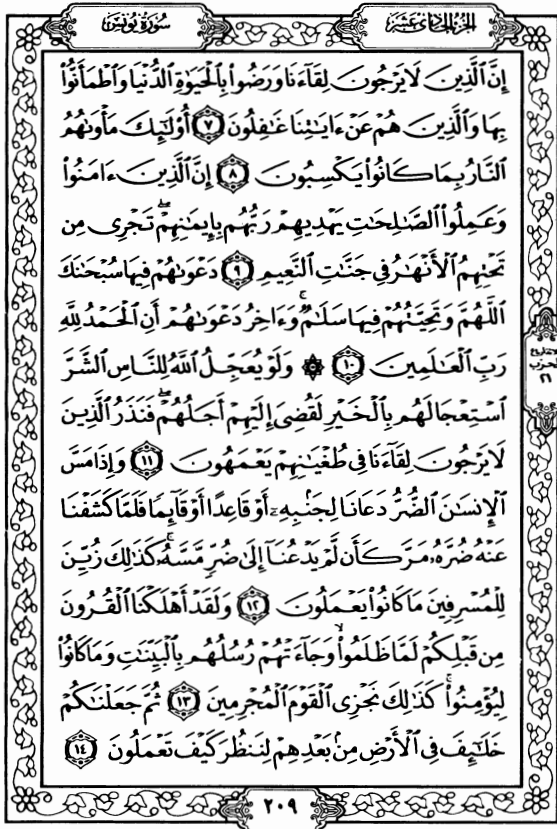 سُورَةُ يُونُسَ
الجُزْءُ الحَادِي عَشَرَ
إِنَّ ٱلَّذِينَ لَا يَرْجُونَ لِقَآءَنَا وَرَضُوا۟ بِٱلْحَيَوٰةِ ٱلدُّنْيَا وَٱطْمَأَنُّوا۟
بِهَا وَٱلَّذِينَ هُمْ عَنْ ءَايَٰتِنَا غَٰفِلُونَ ٧ أُو۟لَٰٓئِكَ مَأْوَىٰهُمُ
ٱلنَّارُ بِمَا كَانُوا۟ يَكْسِبُونَ ٨ إِنَّ ٱلَّذِينَ ءَامَنُوا۟
وَعَمِلُوا۟ ٱلصَّٰلِحَٰتِ يَهْدِيهِمْ رَبُّهُم بِإِيمَٰنِهِمْ ۖ تَجْرِى مِن
تَحْتِهِمُ ٱلْأَنْهَٰرُ فِى جَنَّٰتِ ٱلنَّعِيمِ ٩ دَعْوَىٰهُمْ فِيهَا سُبْحَٰنَكَ
ٱللَّهُمَّ وَتَحِيَّتُهُمْ فِيهَا سَلَٰمٌ ۚ وَءَاخِرُ دَعْوَىٰهُمْ أَنِ ٱلْحَمْدُ لِلَّهِ
رَبِّ ٱلْعَٰلَمِينَ ١٠ ۞ وَلَوْ يُعَجِّلُ ٱللَّهُ لِلنَّاسِ ٱلشَّرَّ
ٱسْتِعْجَالَهُم بِٱلْخَيْرِ لَقُضِىَ إِلَيْهِمْ أَجَلُهُمْ ۖ فَنَذَرُ ٱلَّذِينَ
لَا يَرْجُونَ لِقَآءَنَا فِى طُغْيَٰنِهِمْ يَعْمَهُونَ ١١ وَإِذَا مَسَّ
ٱلْإِنسَٰنَ ٱلضُّرُّ دَعَانَا لِجَنۢبِهِۦٓ أَوْ قَاعِدًا أَوْ قَآئِمًا فَلَمَّا كَشَفْنَا
عَنْهُ ضُرَّهُۥ مَرَّ كَأَن لَّمْ يَدْعُنَآ إِلَىٰ ضُرٍّ مَّسَّهُۥ ۚ كَذَٰلِكَ زُيِّنَ
لِلْمُسْرِفِينَ مَا كَانُوا۟ يَعْمَلُونَ ١٢ وَلَقَدْ أَهْلَكْنَا ٱلْقُرُونَ
مِن قَبْلِكُمْ لَمَّا ظَلَمُوا۟ ۙ وَجَآءَتْهُمْ رُسُلُهُم بِٱلْبَيِّنَٰتِ وَمَا كَانُوا۟
لِيُؤْمِنُوا۟ ۚ كَذَٰلِكَ نَجْزِى ٱلْقَوْمَ ٱلْمُجْرِمِينَ ١٣ ثُمَّ جَعَلْنَٰكُمْ
خَلَٰٓئِفَ فِى ٱلْأَرْضِ مِنۢ بَعْدِهِمْ لِنَنظُرَ كَيْفَ تَعْمَلُونَ ١٤
الحزب
٢١
٢٠٩